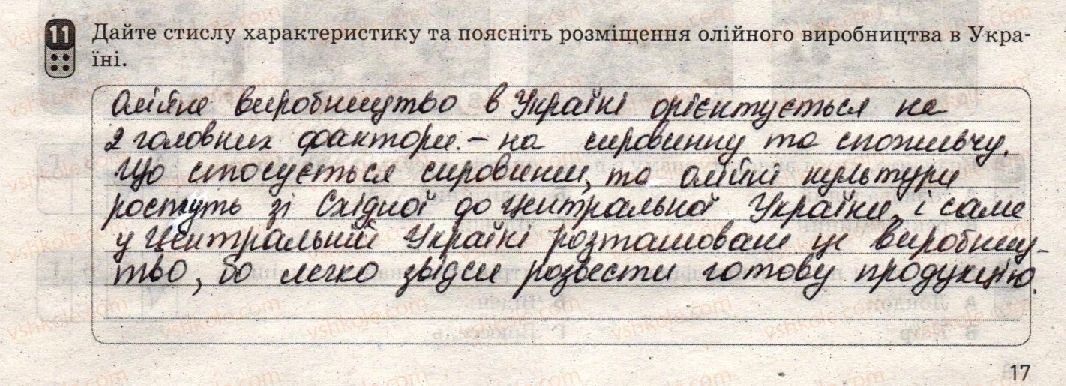 11 Дайте стислу характеристику та поясніть розміщення олійного виробництва в Укра-
їні.
Олійне виробництво в Україні орієнтується на
2 головних фактори – на сировинну та споживчу.
Що стосується сировини, то олійні культури
ростуть зі Східної до Центральної України, і саме
у Центральній Україні розташовані це виробниц-
тво, бо легко звідси розвести готову продукцію.
17